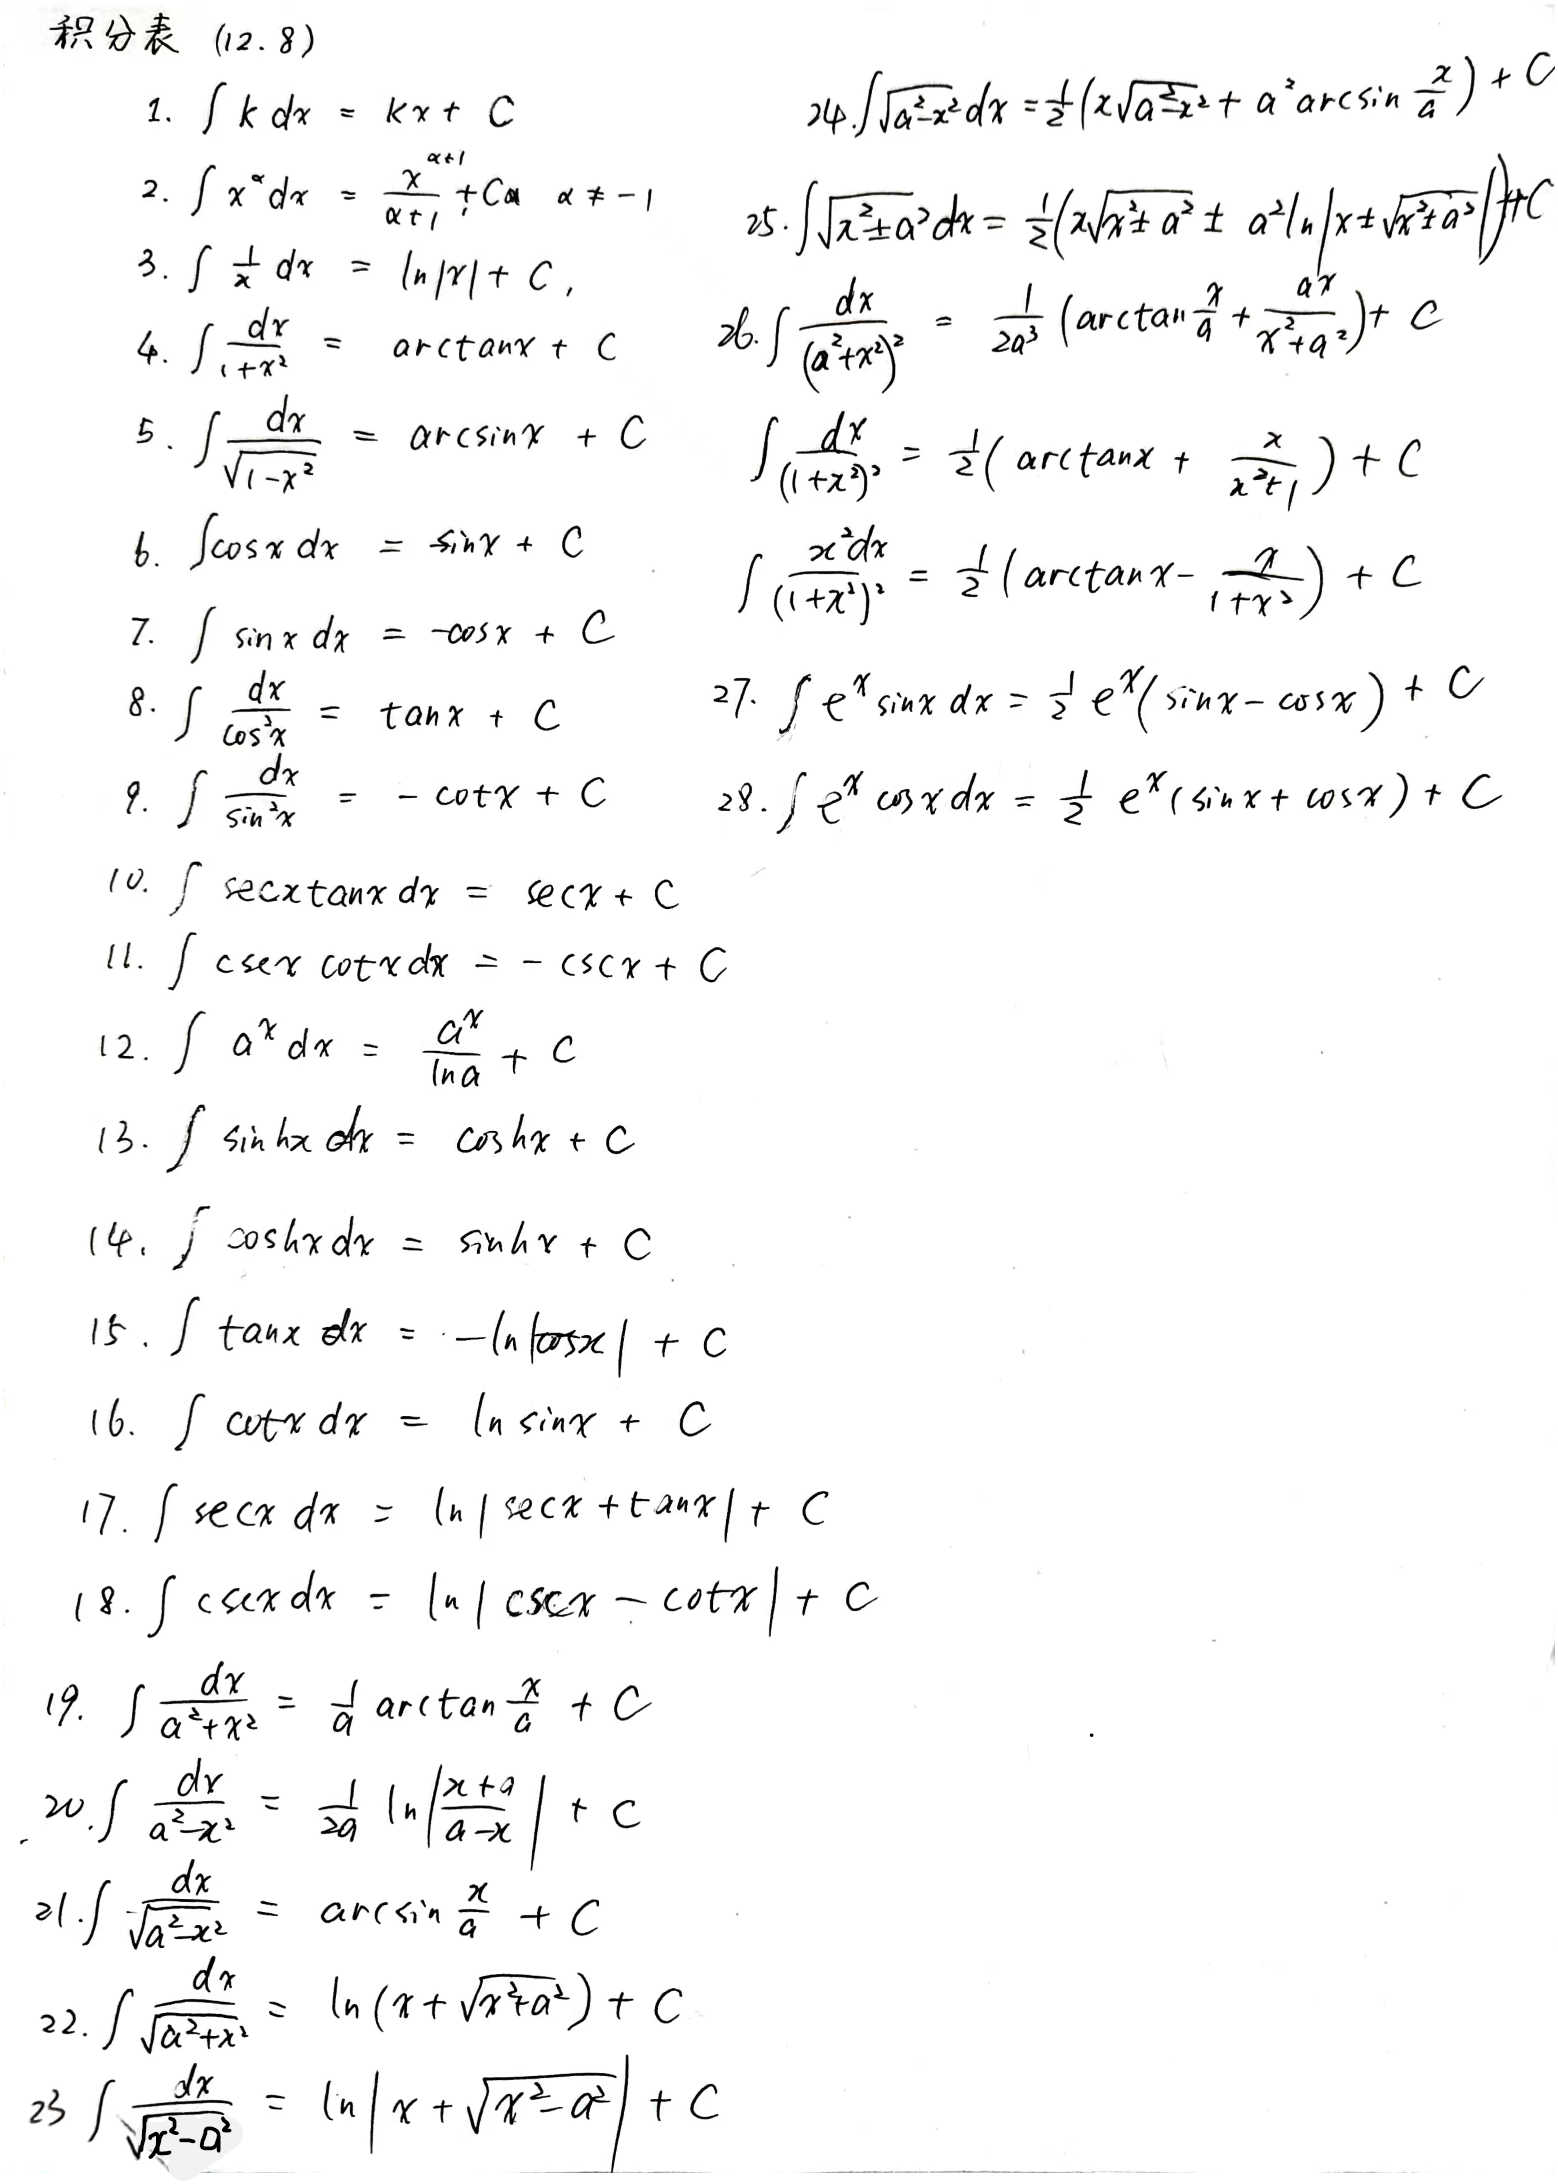 积分表 (12.8)
1. ∫ k dx = kx + C
2. ∫ x^α dx = x^(α+1)/(α+1) + C α ≠ -1
3. ∫ 1/x dx = ln|x| + C,
4. ∫ dx/(1+x²) = arctanx + C
5. ∫ dx/√(1-x²) = arcsinx + C
6. ∫cosx dx = sinx + C
7. ∫ sinx dx = -cosx + C
8. ∫ dx/cos²x = tanx + C
9. ∫ dx/sin²x = - cotx + C
10. ∫ secxtanx dx = secx + C
11. ∫ cscx cotx dx = - cscx + C
12. ∫ a^x dx = a^x/lna + C
13. ∫ sinhx dx = coshx + C
14. ∫ coshx dx = sinhx + C
15. ∫ tanx dx = -ln|cosx| + C
16. ∫ cotx dx = ln sinx + C
17. ∫ secx dx = ln|secx + tanx| + C
18. ∫ cscx dx = ln|cscx - cotx| + C
19. ∫ dx/(a²+x²) = 1/a arctan x/a + C
20. ∫ dx/(a²-x²) = 1/2a ln|(x+a)/(a-x)| + C
21. ∫ dx/√(a²-x²) = arcsin x/a + C
22. ∫ dx/√(a²+x²) = ln(x+√(x²+a²)) + C
23 ∫ dx/√(x²-a²) = ln|x+√(x²-a²)| + C
24. ∫√(a²-x²) dx = 1/2(x√(a²-x²) + a² arcsin x/a) + C
25. ∫√(x²±a²) dx = 1/2(x√(x²±a²) ± a² ln|x±√(x²±a²)|) + C
26. ∫ dx/(a²+x²)² = 1/2a³ (arctan x/a + ax/(x²+a²)) + C
∫ dx/(1+x²)² = 1/2(arctanx + x/(x²+1)) + C
∫ x²dx/(1+x²)² = 1/2(arctanx - x/(1+x²)) + C
27. ∫ e^x sinx dx = 1/2 e^x(sinx - cosx) + C
28. ∫ e^x cosx dx = 1/2 e^x(sinx + cosx) + C